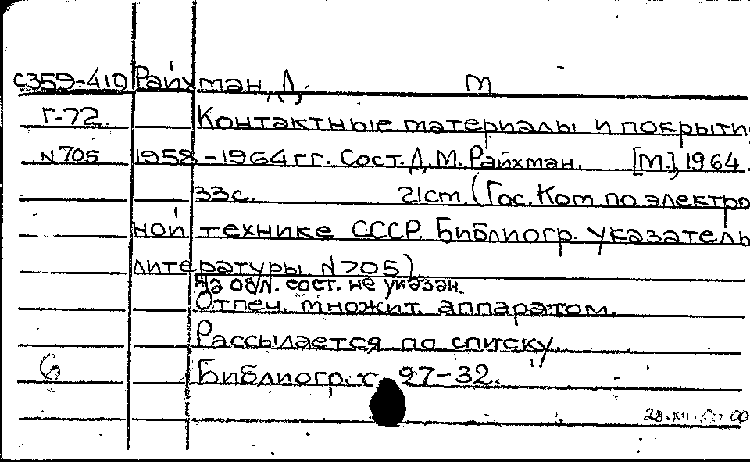 С359-410 Райхман, Д. М
Г-72. Контактные материалы и покрыти
N705 1958-1964 гг. Сост. Д.М. Райхман. [М.], 1964.
33с. 21cm. (Гос. Ком по электро
ной технике СССР. Библиогр. указатель
литературы. N705)
На обл. сост. не указан.
Отпеч. множит. аппаратом.
Рассылается по списку
6 Библиогр. с. 27-32.